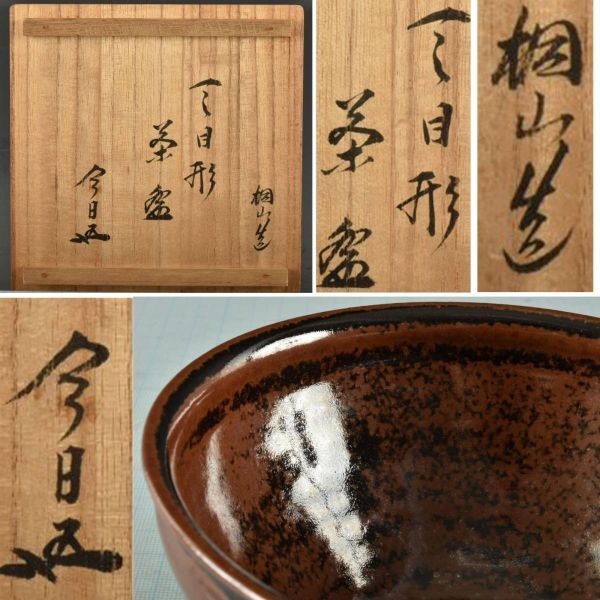 桐山造
天目形
茶盌
今日庵
天目形
茶盌
桐山造
今日庵